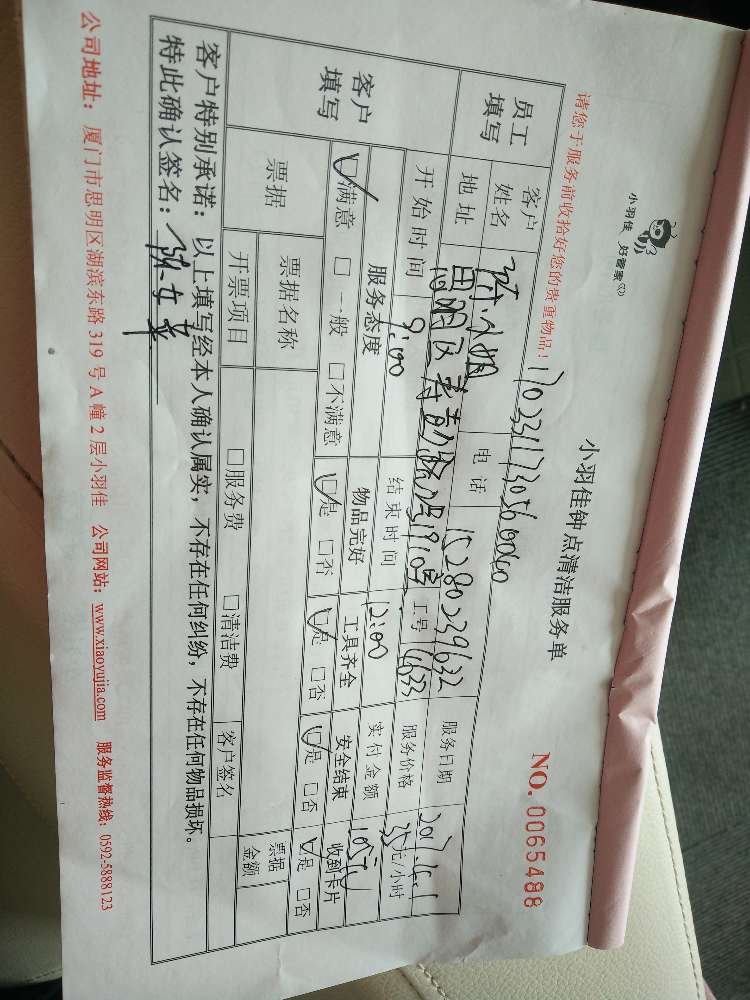 小羽佳 好管家
小羽佳钟点清洁服务单
NO. 0065488
请您于服务前收拾好您的贵重物品！
员工填写 客户姓名 电话 15280239632 服务日期
地址 思明区 号 工号 服务价格 35元/小时
开始时间 9:00 结束时间 12:00 实付金额 105元
客户填写 服务态度 物品完好 工具齐全 安全结束 收到卡片
☑满意 □一般 □不满意 ☑是 □否 ☑是 □否 ☑是 □否 ☑是 □否
票据 票据名称 票据金额
开票项目 □服务费 □清洁费 客户签名
客户特别承诺：以上填写经本人确认属实，不存在任何纠纷，不存在任何物品损坏。
特此确认签名：
公司地址：厦门市思明区湖滨东路319号A幢2层小羽佳 公司网站：www.xiaoyujia.com 服务监督热线：0592-5888123